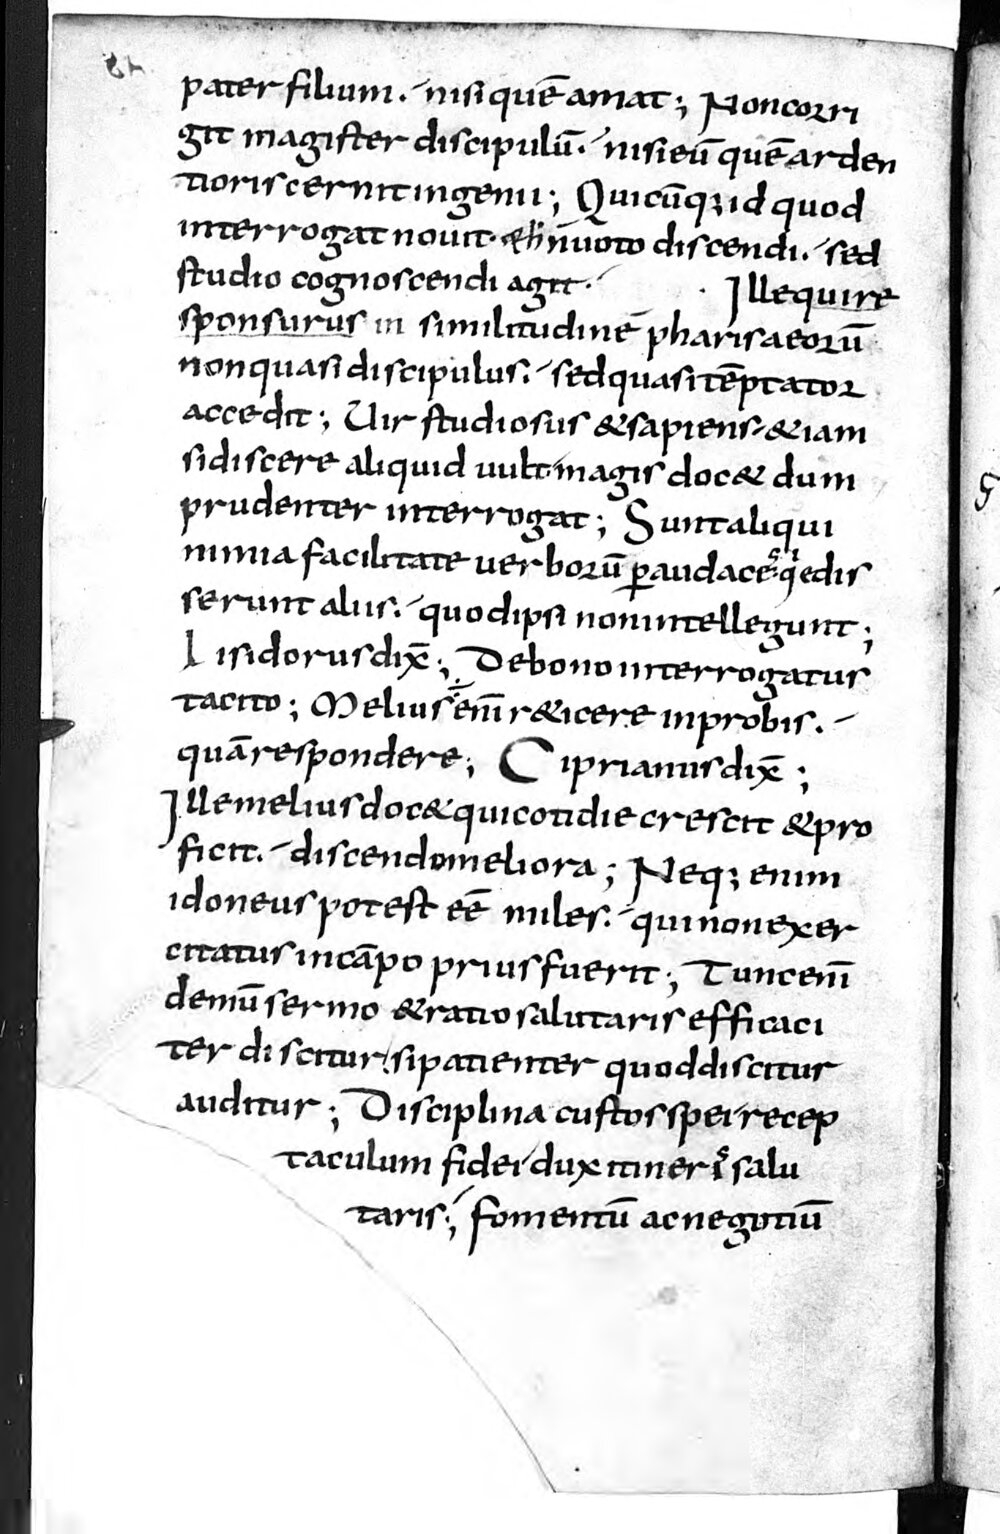 pater filium. nisi quē amat; Non corri
git magister discipulū. nisi eū quē arden
tioris cernit ingenii; Quicūq; id quod
interrogat novit. & h̄ n̄ voto discendi. sed
studio cognoscendi agit. Ille qui re
sponsurus in similitudinē pharisaeorū
non quasi discipulus. sed quasi tēptator
accedit; Uir studiosus & sapiens. & iam
si discere aliquid vult magis doc& dum
prudenter interrogat; Sunt aliqui
nimia facilitate verborū p̲audaces qui edis
serunt aliis. quod ipsi non intellegunt;
Isidorus dix̄; De bono interrogatus
tacito; Melius ē enī r&icere inprobis.
quā respondere; Ciprianus dix̄;
Ille melius doc& qui cotidie crescit & pro
ficit. discendo meliora; Neq; enim
idoneus potest eē miles. qui non exer
citatus in cāpo prius fuerit; Tunc enī
demū sermo & ratio salutaris efficaci
ter discitur. si patienter quod discitur
auditur; Disciplina custos spei recep
taculum fidei dux itineris salu
taris; fomentū ac negotiū